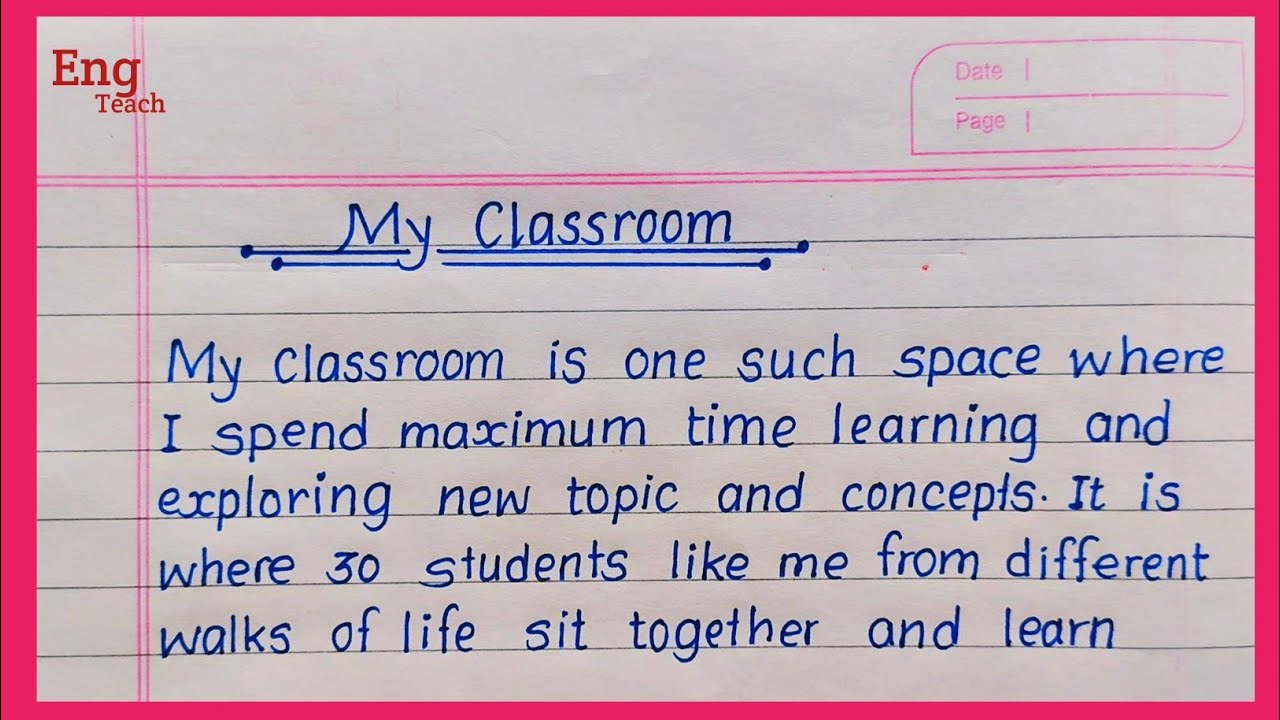 Eng
Teach
Date
Page
My Classroom
My classroom is one such space where
I spend maximum time learning and
exploring new topic and concepts. It is
where 30 students like me from different
walks of life sit together and learn